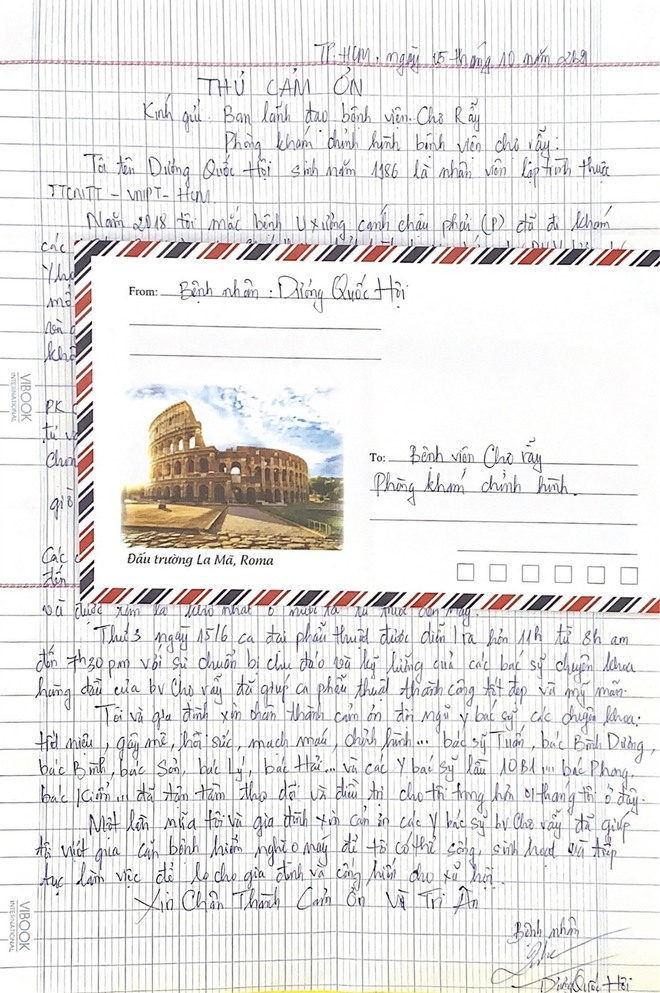 TP. HCM, ngày 15 tháng 10 năm 2021
THƯ CẢM ƠN
Kính gửi: Ban lãnh đạo bệnh viện Chợ Rẫy
Phòng khám chỉnh hình bệnh viện chợ rẫy.
Tôi tên Dương Quốc Hội sinh năm 1986 là nhân viên lập trình thuộc
TTCNTT - VNPT - HCM.
Năm 2018 tôi mắc bệnh U xương cánh chậu phải (P) đã đi khám
các
From: Bệnh nhân: Dương Quốc Hội
VIBOOK
INTERNATIONAL
PK
To: Bệnh viện Chợ rẫy
Phòng khám chỉnh hình.
Đấu trường La Mã, Roma
Các
đến
Thứ 3 ngày 15/6 ca đại phẫu thuật được diễn ra hơn 11h từ 8h am
đến 7h30 pm với sự chuẩn bị chu đáo và kỹ lưỡng của các bác sỹ chuyên khoa
hàng đầu của bv Chợ rẫy đã giúp ca phẫu thuật thành công tốt đẹp và mỹ mãn.
Tôi và gia đình xin chân thành cảm ơn đội ngũ y bác sỹ các chuyên khoa:
tiết niệu, gây mê, hồi sức, mạch máu, chỉnh hình... bác sỹ Tuấn, bác Bình Dương,
bác Bình, bác Sơn, bác Lý, bác Hải... và các Y bác sỹ lầu 10B1... bác Phong,
bác Kiểm... đã tận tâm theo dõi và điều trị cho tôi trong hơn 01 tháng tôi ở đây.
Một lần nữa tôi và gia đình xin cảm ơn các Y bác sỹ bv Chợ rẫy đã giúp
tôi vượt qua căn bệnh hiểm nghèo này để tôi có thể sống, sinh hoạt và tiếp
tục làm việc để lo cho gia đình và cống hiến cho xã hội.
Xin Chân Thành Cảm Ơn Và Tri Ân
Bệnh nhân
Dương Quốc Hội
VIBOOK
INTERNATIONAL